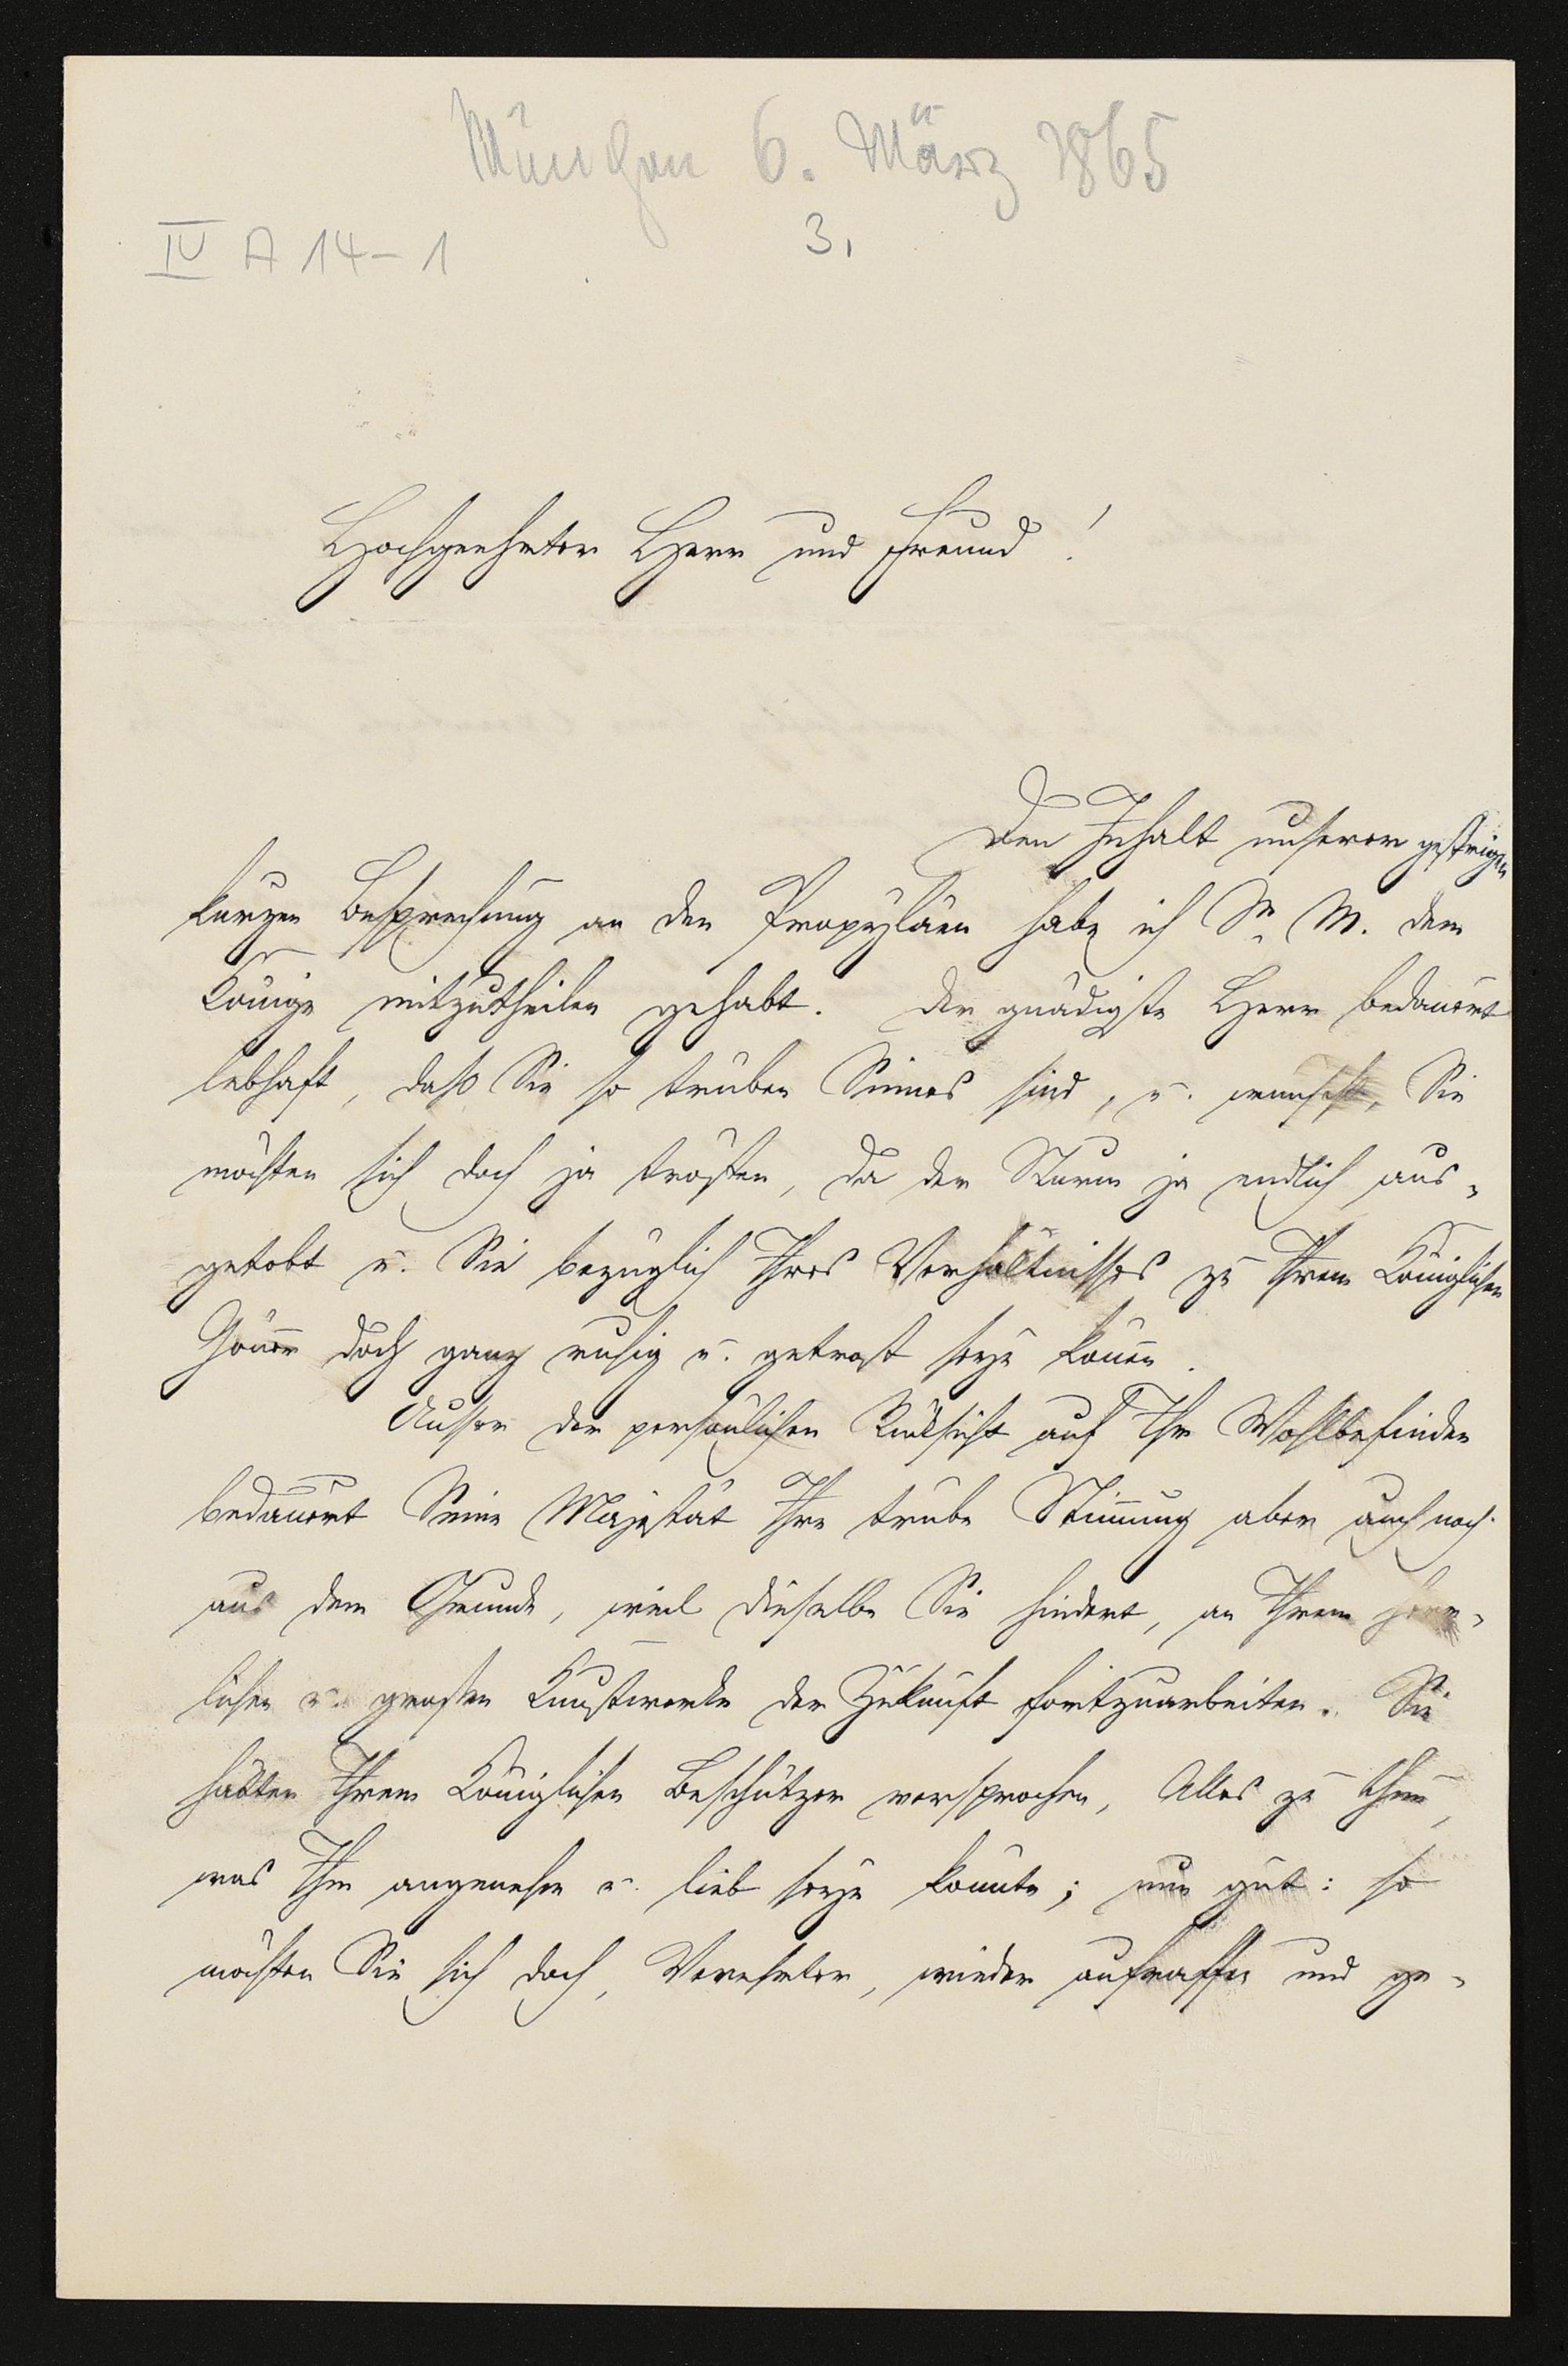 München 6. März 1865
3.
IV A 14-1
Hochgeehrter Herr und Freund!
Den Inhalt unserer gestrigen
kurzen Besprechung an den Propyläen habe ich Sr. M. dem
Könige mitzutheilen gehabt. Der gnädigste Herr bedauert
lebhaft, daß Sie so trüben Sinnes sind, u. wünscht, Sie
möchten sich doch ja trösten, da der Sturm ja endlich aus-
getobt u. Sie bezüglich Ihres Verhältnisses zu Ihrem Königlichen
Gönner doch ganz ruhig u. getrost seyn können.
Ausser der persönlichen Rücksicht auf Ihr Wohlbefinden
bedauert Seine Majestät Ihre trübe Stimmung aber auch noch
aus dem Grunde, weil dieselbe Sie hindert, an Ihrem herr-
lichen u. großen Kunstwerke der Zukunft fortzuarbeiten. Sie
hätten Ihrem Königlichen Beschützer versprochen, Alles zu thun,
was Ihm angenehm u. lieb seyn könnte; nun gut: so
möchten Sie sich doch, Verehrter, wieder aufraffen und ge-